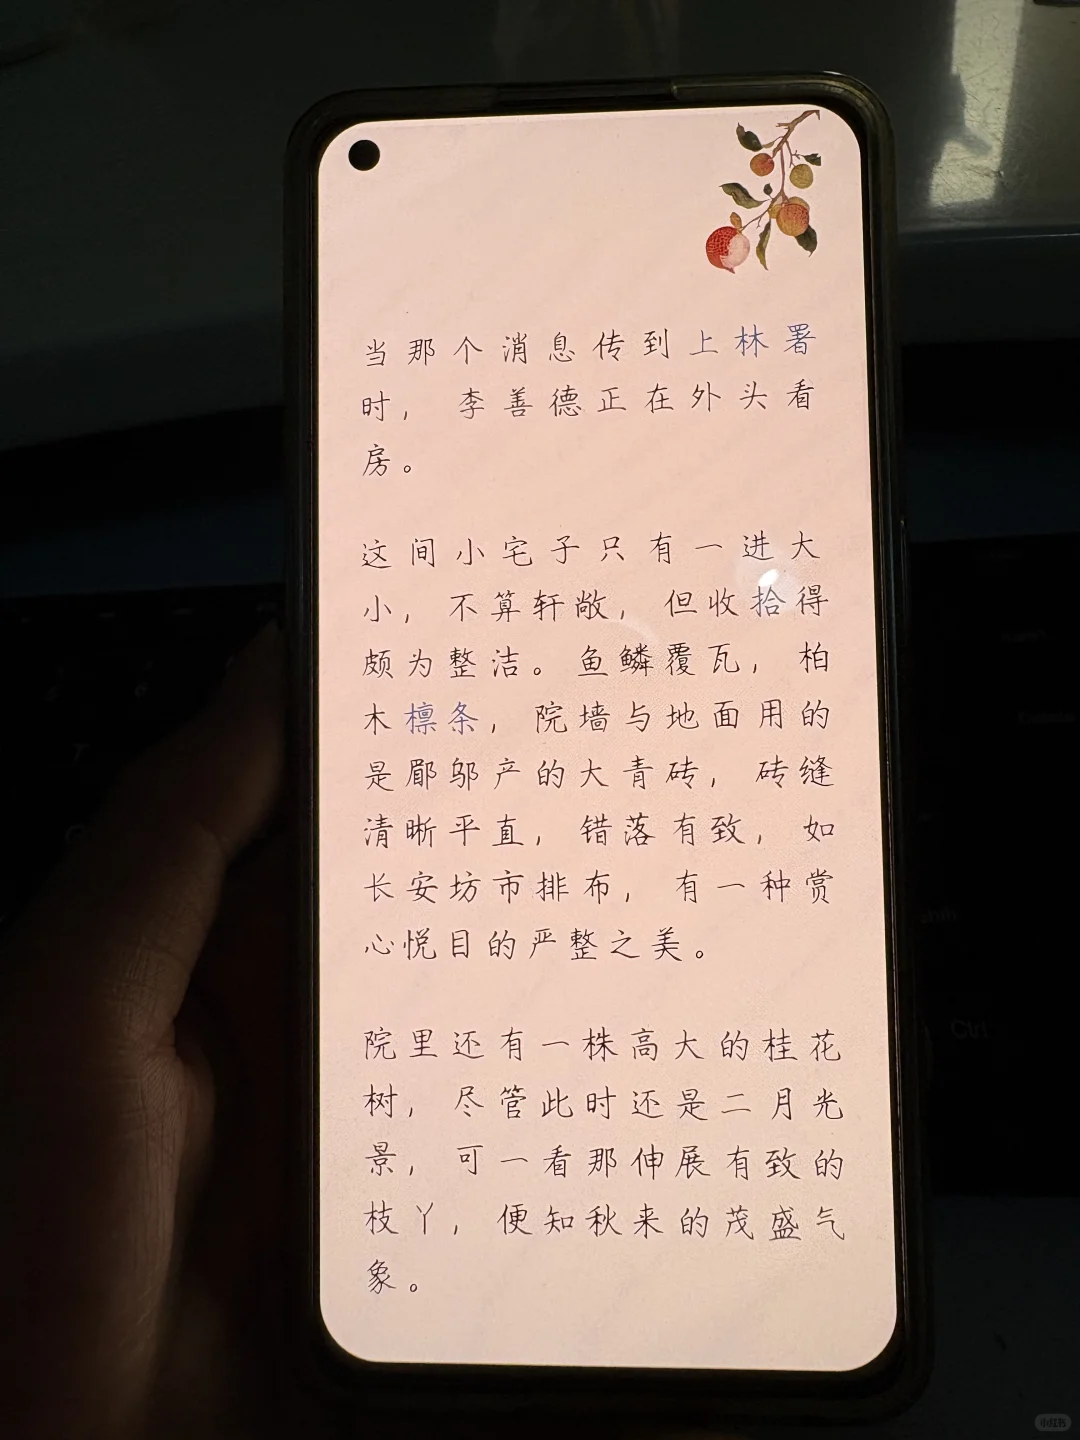 当那个消息传到上林署
时，李善德正在外头看
房。
这间小宅子只有一进大
小，不算轩敞，但收拾得
颇为整洁。鱼鳞覆瓦，柏
木檩条，院墙与地面用的
是郿邬产的大青砖，砖缝
清晰平直，错落有致，如
长安坊市排布，有一种赏
心悦目的严整之美。
院里还有一株高大的桂花
树，尽管此时还是二月光
景，可一看那伸展有致的
枝丫，便知秋来的茂盛气
象。
Ctrl
小红书